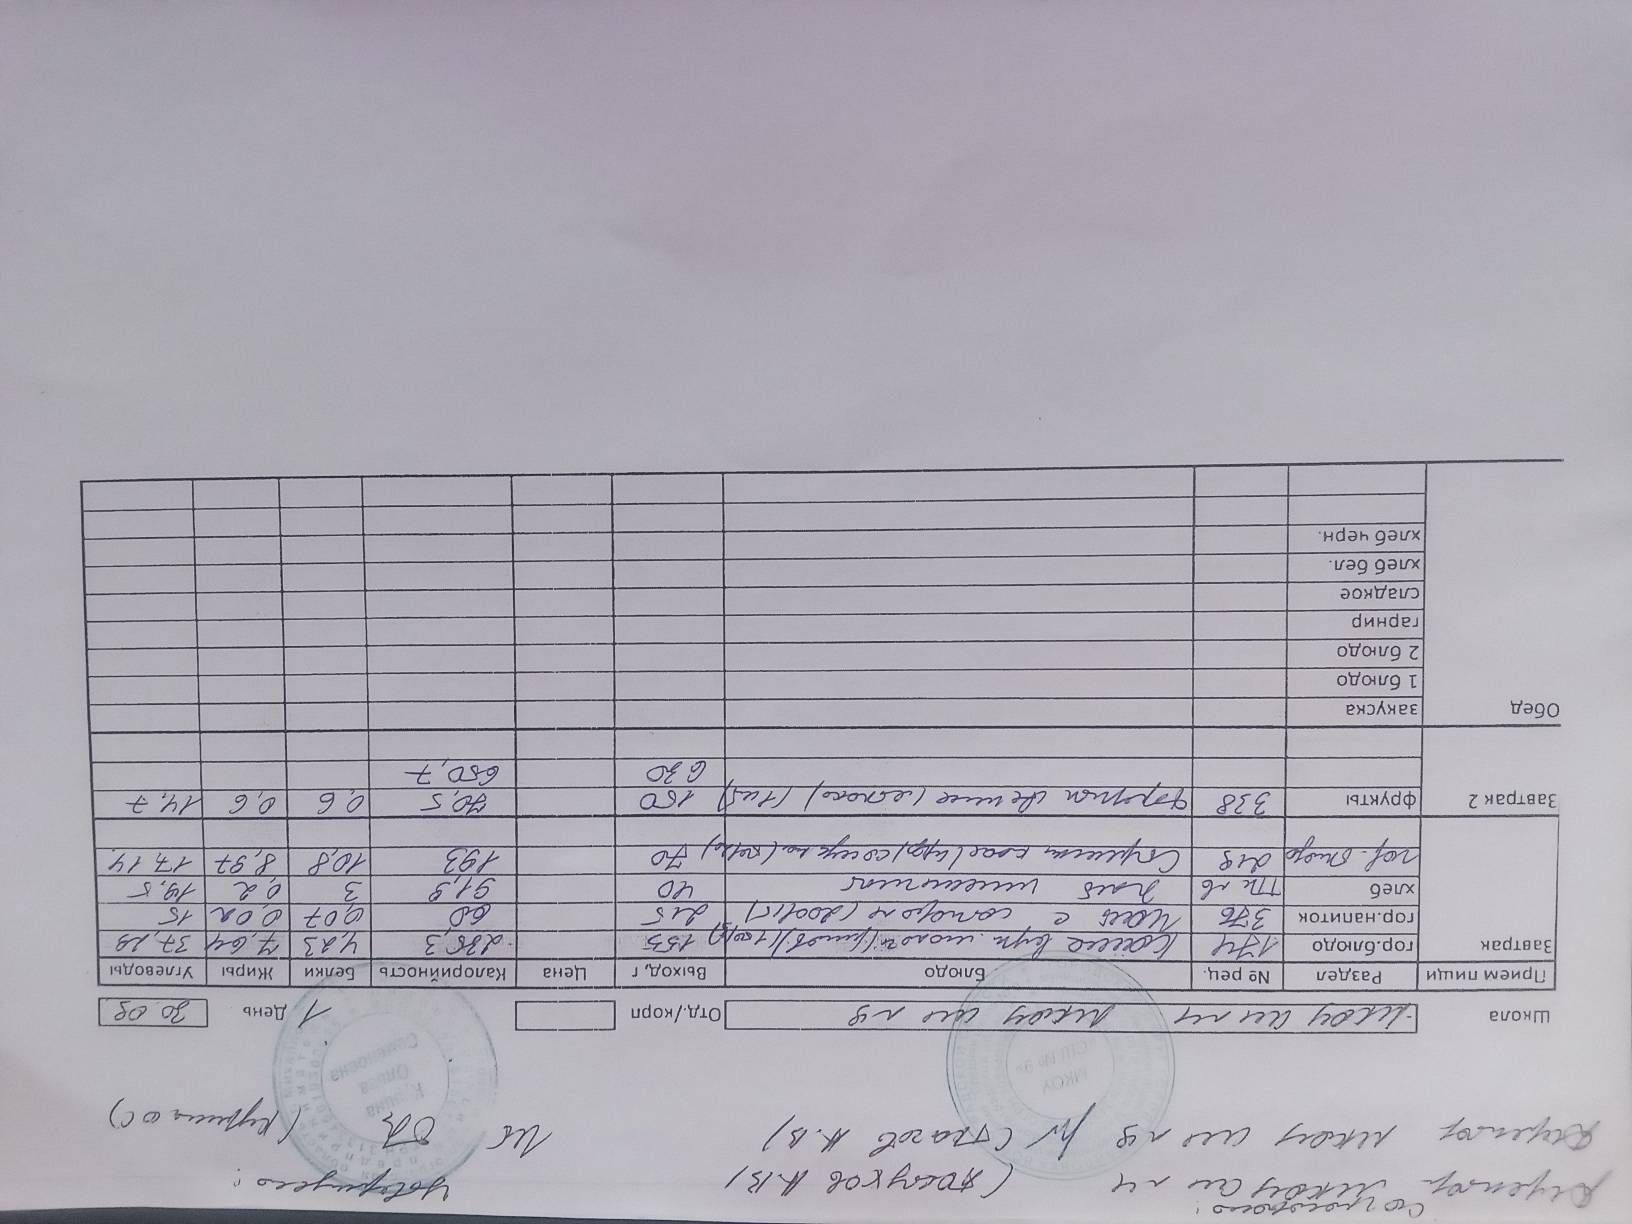 Согласовано: Утверждено:
Директор МКОУ СШ №4 (Косухов А.В)
Директор МКОУ СШ №9 (Глазов А.В) ИП (Курина ОС)
МКОУ СШ № 9
Курина Ольга Семеновна
Школа МКОУ СШ №4 МКОУ СШ №9 Отд./корп 1 День 30.09
Прием пищи Раздел № рец. Блюдо Выход, г Цена Калорийность Белки Жиры Углеводы
Завтрак гор.блюдо 174 Каша вяз. молоч. 155 285,3 4,23 7,64 37,29
гор.напиток 376 Чай с сахаром (200/15) 215 60 0,07 0,02 15
хлеб ТТК пв Хлеб пшеничный 40 91,9 3 0,2 19,5
гор. блюдо 219 70 193 10,8 8,97 17,14
Завтрак 2 фрукты 338 Фрукты свежие (яблоко) (1шт) 150 70,5 0,6 0,6 14,7
630 650,7
Обед закуска
1 блюдо
2 блюдо
гарнир
сладкое
хлеб бел.
хлеб черн.